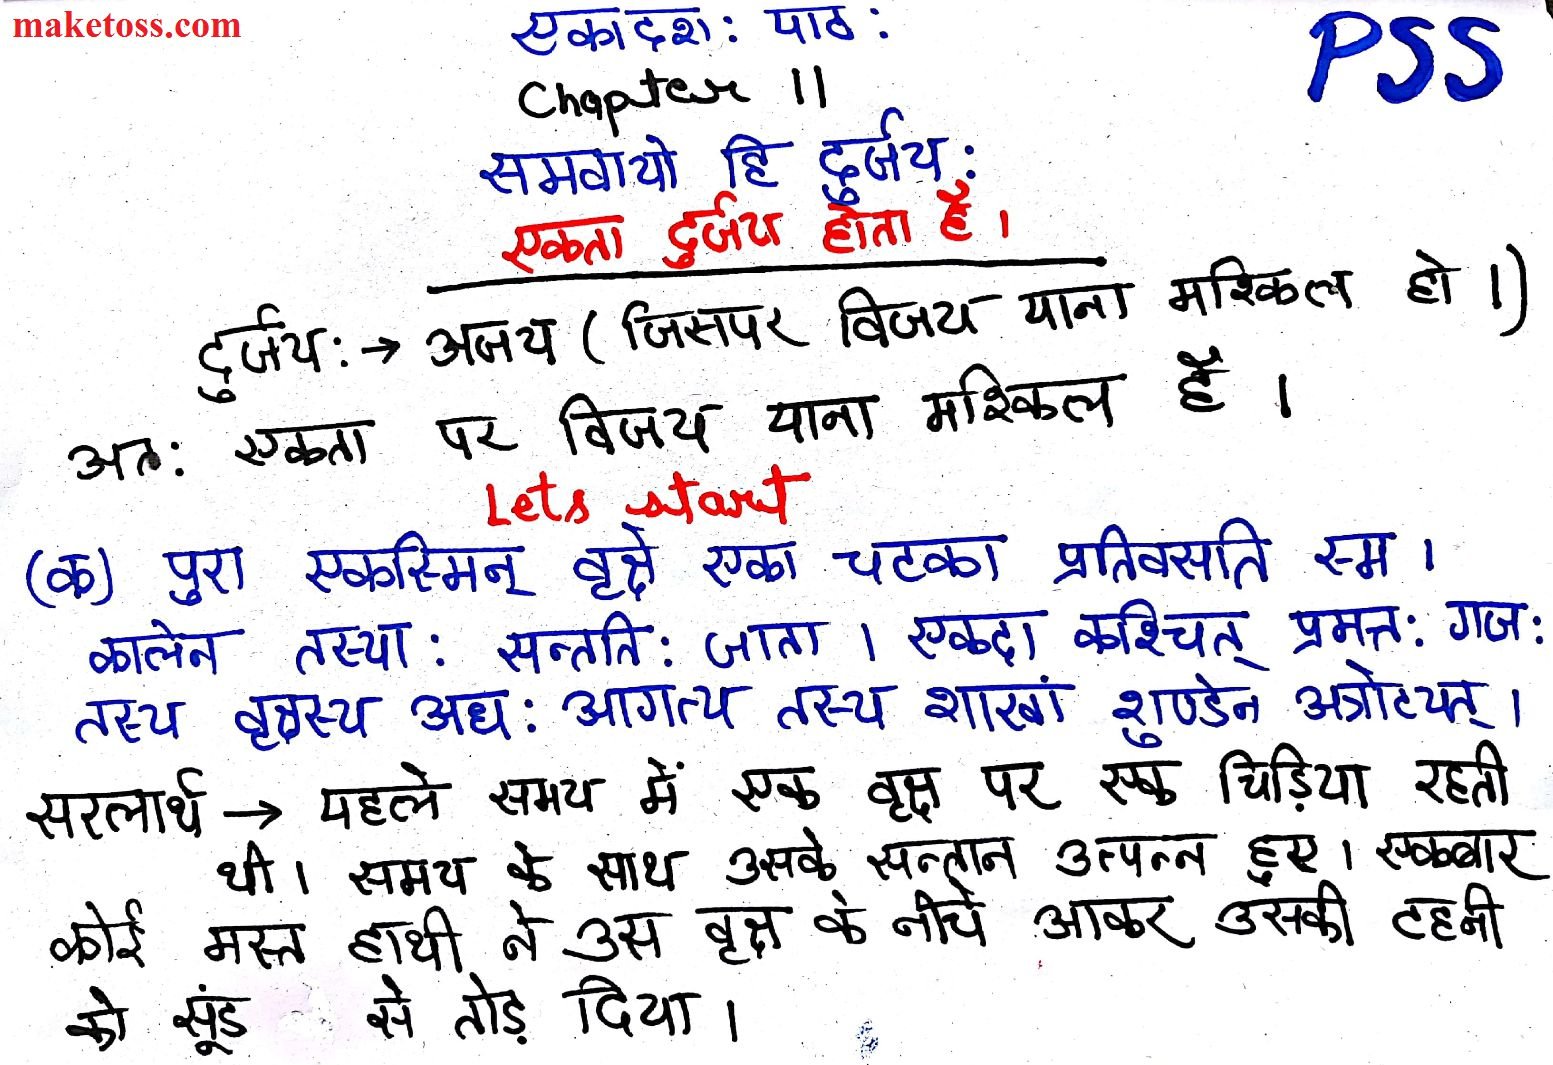 maketoss.com
PSS
एकादश: पाठ:
Chapter 11
समवायो हि दुर्जय:
एकता दुर्जय होता है।
दुर्जय: → अजय (जिसपर विजय पाना मश्किल हो।)
अत: एकता पर विजय पाना मश्किल है।
Lets start
(क) पुरा एकस्मिन् वृक्षे एका चटका प्रतिवसति स्म।
कालेन तस्या: सन्तति: जाता। एकदा कश्चित् प्रमत्त: गज:
तस्य वृक्षस्य अध: आगत्य तस्य शाखां शुण्डेन अत्रोटयत्।
सरलार्थ → पहले समय में एक वृक्ष पर एक चिड़िया रहती
थी। समय के साथ उसके सन्तान उत्पन्न हुए। एकबार
कोई मस्त हाथी ने उस वृक्ष के नीचे आकर उसकी टहनी
को सूंड से तोड़ दिया।